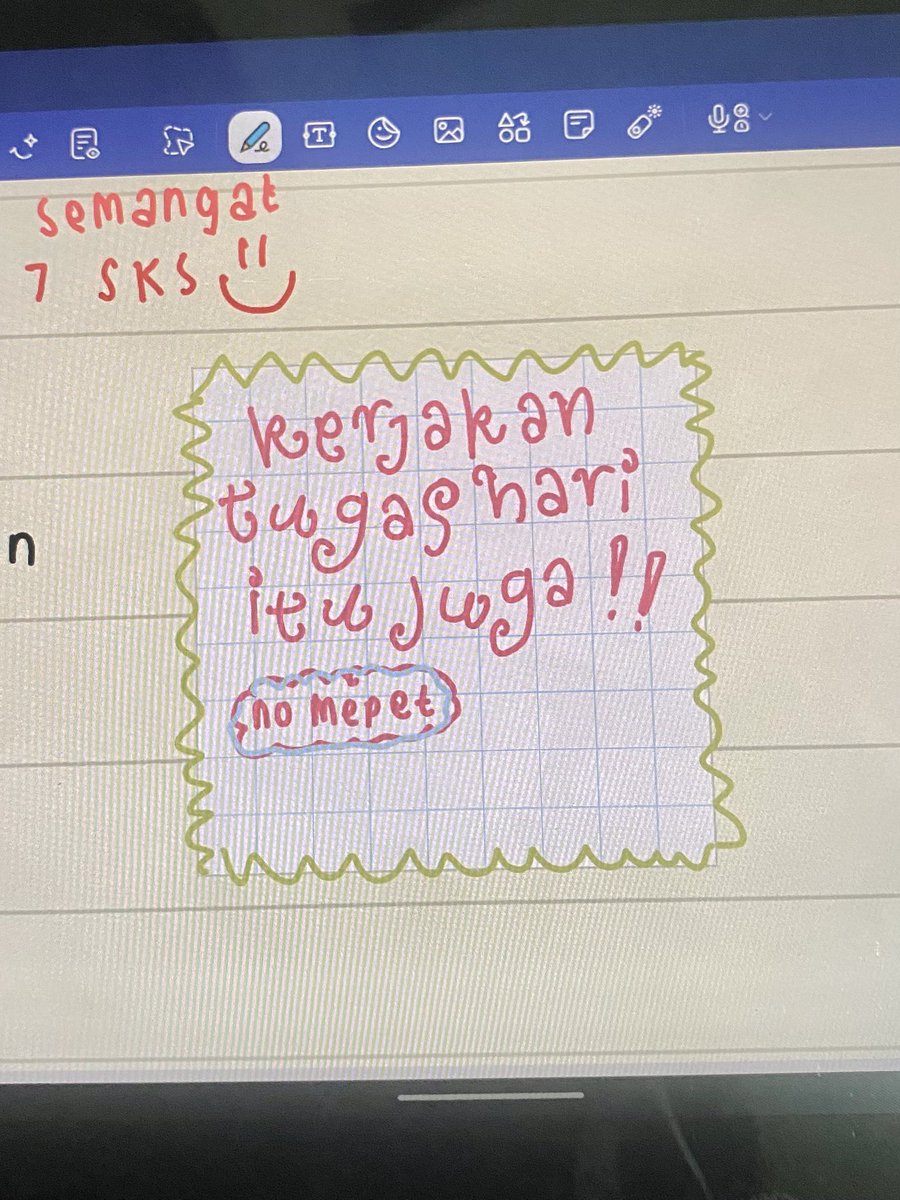 semangat
7 SKS
kerjakan
tugas hari
itu juga !!
no mepet
n